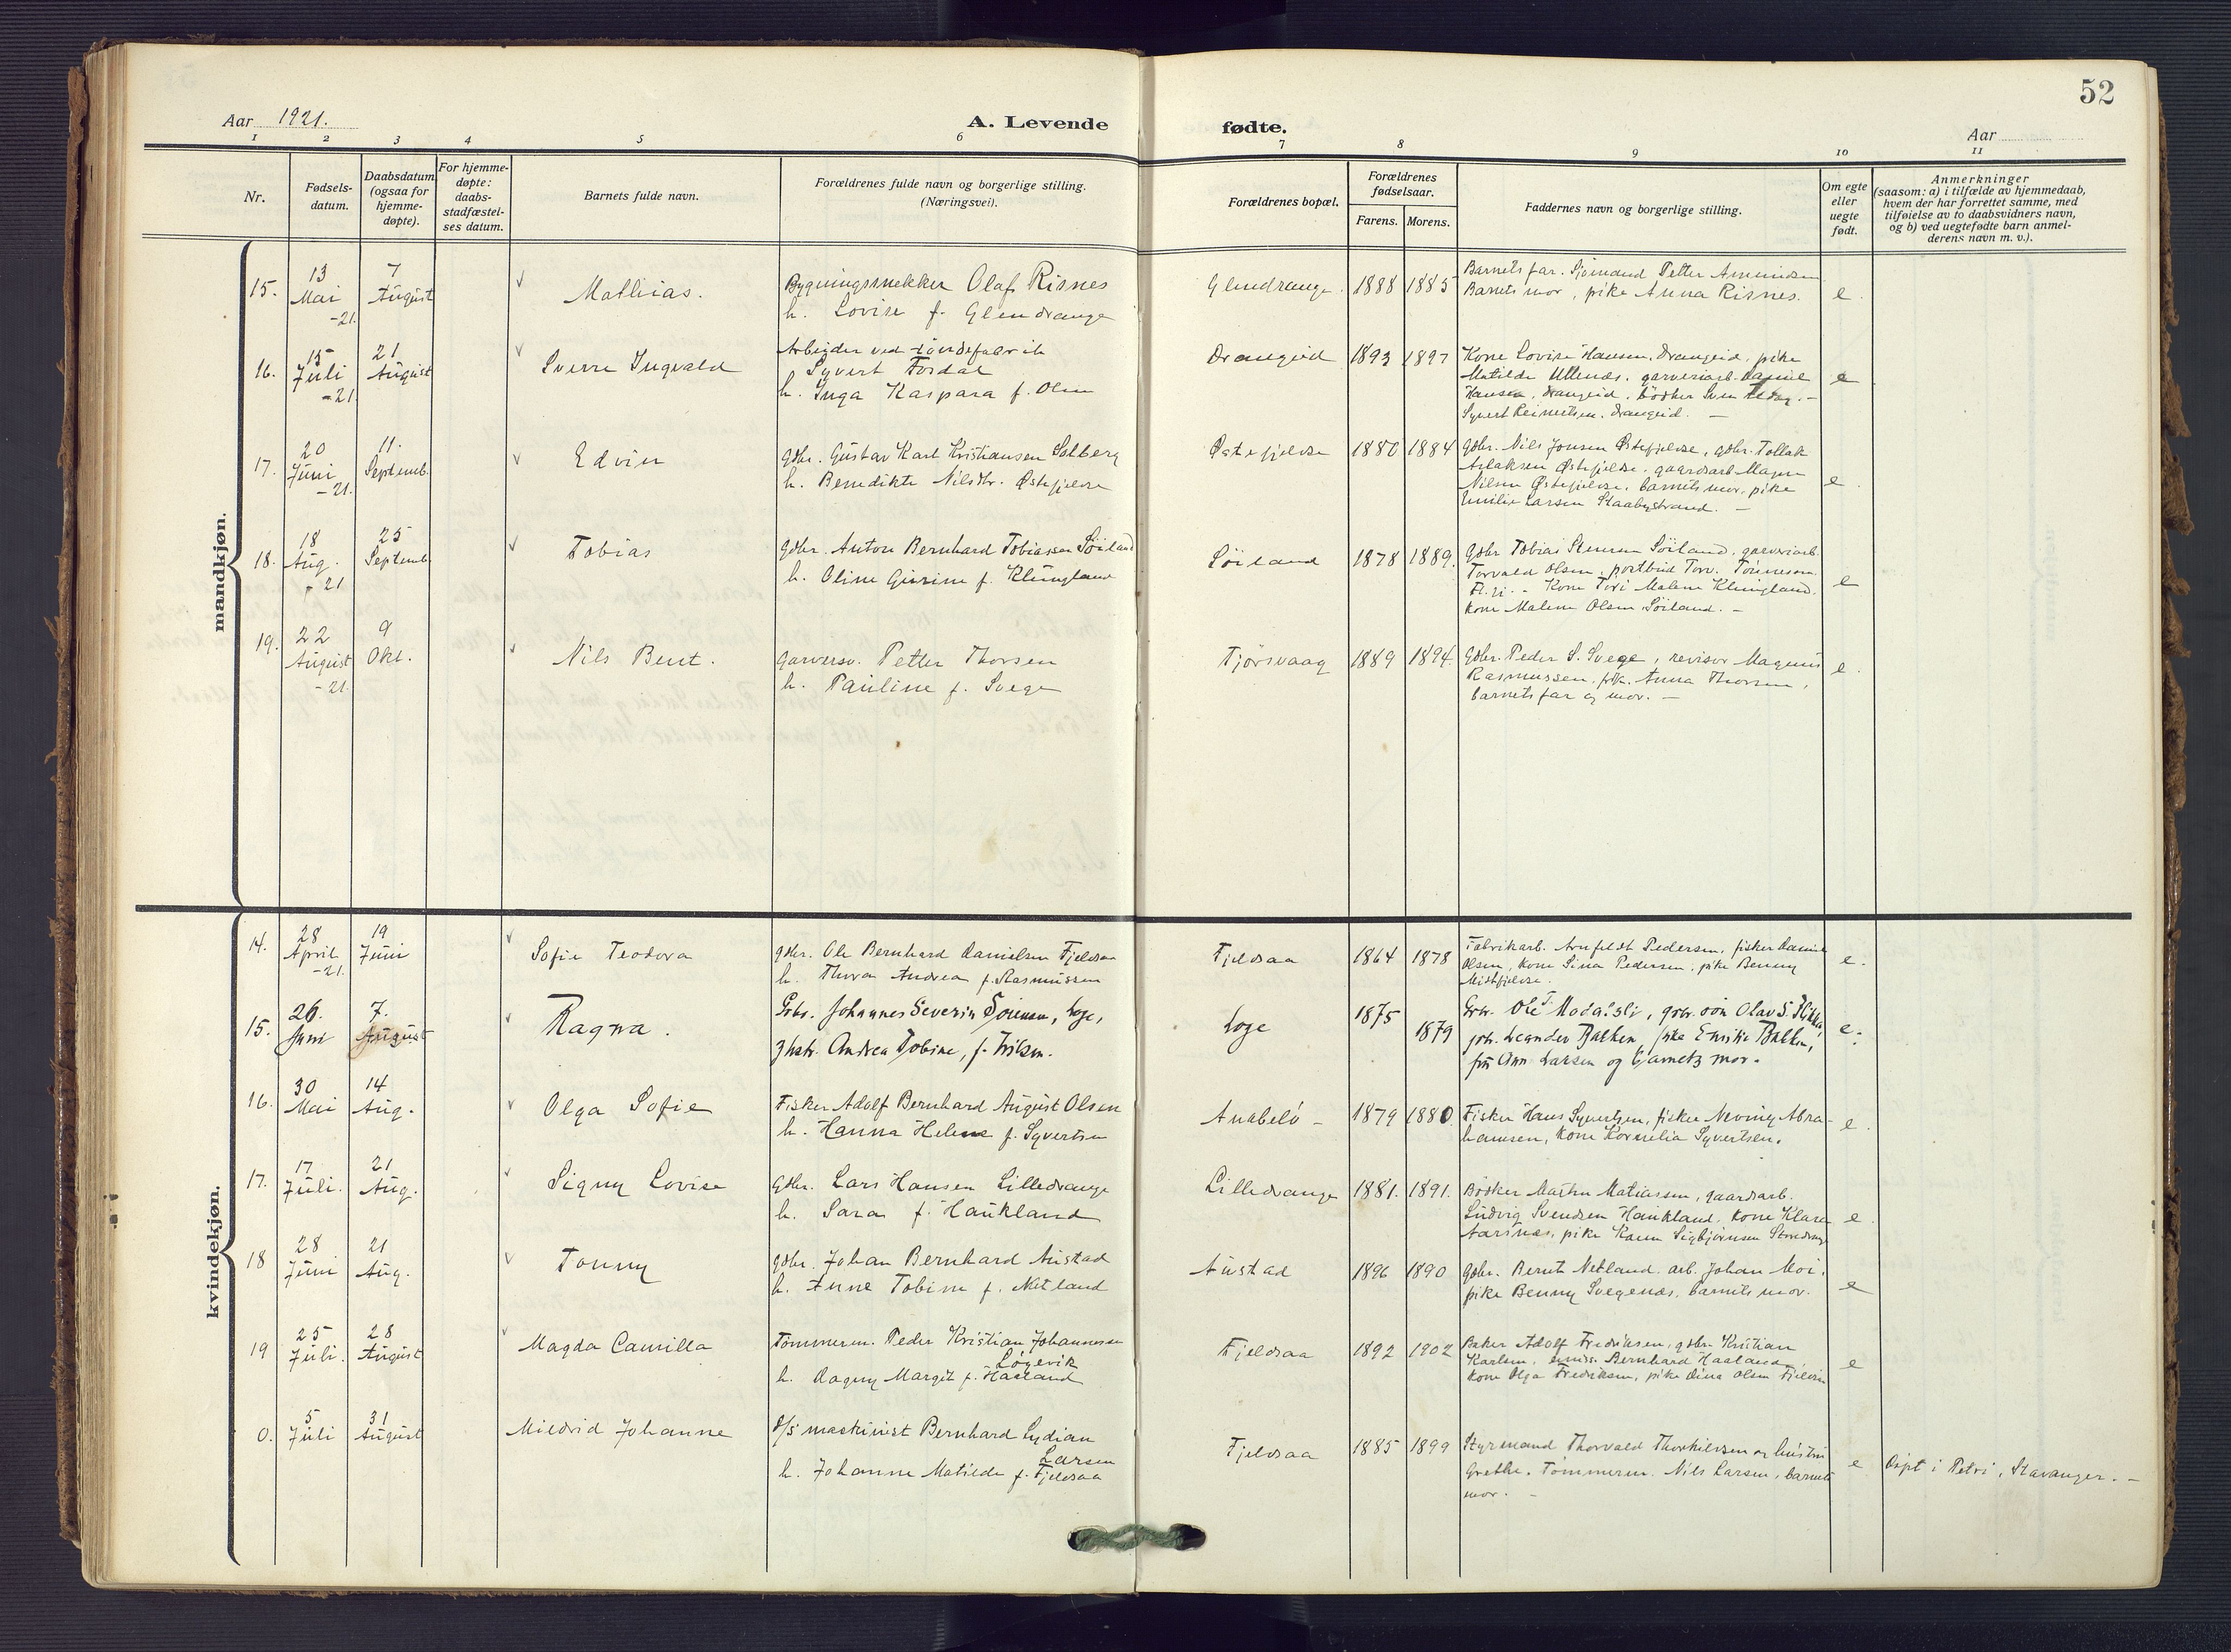 52
Aar 1921.
A. Levende fødte.
Aar
1 2 3 4 5 6 7 8 9 10 11
Nr.
Fødsels-
datum.
Daabsdatum
(ogsaa for
hjemme-
døpte).
For hjemme-
døpte:
daabs-
stadfæstel-
ses datum.
Barnets fulde navn.
Forældrenes fulde navn og borgerlige stilling.
(Næringsvei).
Forældrenes bopæl.
Forældrenes
fødselsaar.
Farens. Morens.
Faddernes navn og borgerlige stilling.
Om egte
eller
uegte
født.
Anmerkninger
(saasom: a) i tilfælde av hjemmedaab,
hvem der har forrettet samme, med
tilføielse av to daabsvidners navn,
og b) ved uegtefødte barn anmel-
derens navn m. v.).
mandkjøn.
15.
13
Mai
-21.
7
August
Mathias.
Bygningssnekker Olaf Risnes
h. Lovise f. Glendrange
Glendrange.
1888 1885
Barnets far. Sjömand Petter Amundsen
Barnets mor, pike Anna Risnes.
e.
16.
15
Juli
-21.
21
August
Sverre Ingvald
Arbeider ved töndefabrik
Syvert Fordal
h. Inga Kaspara f. Olsen
Drangeid
1893 1897
Kone Lovise Hansen, Drangeid, pike
Matilde Ullenæs, garveriarb. Daniel
Hansen, Drangeid, bödker Sven
Syvert Reinertsen, Drangeid. —
e
17.
20
Juni
-21.
11.
Septemb.
Edvin
gdbr. Gustav Karl Kristiansen Solberg
h. Benedikte Nilsdtr. Østefjelde
Østefjelde
1880 1884
Gdbr. Nils Jonsen Østefjelde, gdbr. Tollak
Aslaksen Østefjelde, gaardsarb. Magne
Nilsen Østefjelde, barnets mor, pike
Emilie Larsen Staabystrand. —
e.
18.
18
Aug.
-21
25
Septemb.
Tobias
gdbr. Anton Bernhard Tobiassen Söiland
h. Oline Gurine f. Klungland
Söiland
1878 1889.
Gdbr Tobias Stensen Söiland, garveriarb.
Torvald Olsen, postbud Torv. Tönnesen
Kone Tori Malene Klungland.
kone Malene Olsen Söiland. —
e
19.
22
August
-21.
9
Okt.
Nils Bent.
garversv. Petter Thorsen
h. Pauline f. Svege
Tjörsvaag
1889 1894.
Gdbr. Peder S. Svege, revisor Magnus
Rasmussen, frk. Anna Thorsen,
barnets far og mor. —
e.
kvindekjøn.
14.
28
April
-21.
19
Juni
Sofie Teodora
gdbr. Ole Bernhard Danielsen Fjeldsaa
h. Thora Andrea f. Rasmussen
Fjeldsaa
1864 1878
Fabrikarb. Arnfeldt Pedersen, fisker Daniel
Olsen, kone Sina Pedersen, pike Benny
Midtfjelde.
e.
15.
26.
Juni
7.
August
Ragna.
Gbr. Johannes Severin Sörensen, Loge,
Hstr. Andrea Tobine, f. Nilsen.
Loge
1875
1879
Gbr. Ole T. Modalsli, gbr. sön Olav S.
gbr. Leander Bakken, pike Emilie Bakken,
frü Ann Larsen og barnets mor.
e.
16.
30
Mai
14
Aug.
Olga Sofie
Fisker Adolf Bernhard August Olsen
h. Hanna Helene f. Syvertsen
Anabelö —
1879 1880.
Fisker Hans Syvertsen, fisker Nevning Abra-
hamsen, kone Kornelia Syvertsen.
e.
17.
17
Juli.
21
Aug.
Signy Lovise
Gdbr. Lars Hansen Lilledrange
h. Sara f. Haukland
Lilledrange
1881. 1891.
Bödker Martin Matiassen, gaardsarb.
Ludvig Svendsen Haukland, kone Klara
Aarsnæs, pike Karen Sigbjörnsen Storedrange
e.
18
28
Juni
21
Aug.
Tonny
gdbr. Johan Bernhard Austad
h. Anne Tobine f. Netland
Austad
1896 1890
gdbr. Bernt Netland. arb. Johan Moi.
pike Benny Svegenæs, barnets mor.
e
19
25
Juli.
28
August
Magda Camilla
Tömmerm. Peder Kristian Johannessen
Lögevik
h. Dagny Margit f. Haaland
Fjeldsaa
1892 1902
Baker Adolf Fredriksen, gdbr. Kristian
Karlsen, emiss. Bernhard Haaland,
kone Olga Fredriksen, pike Dina Olsen
e
0.
5
Juli
31
August
Mildrid Johanne
d/s maskinist Bernhard Lydian
Larsen
h. Johanne Matilde f. Fjeldsaa
Fjeldsaa
1885 1899
Styrmand Thorvald Thorkildsen og hustru
Grethe. Tömmerm. Nils Larsen, barnets
mor. —
e
Döpt i Petri, Stavanger. —